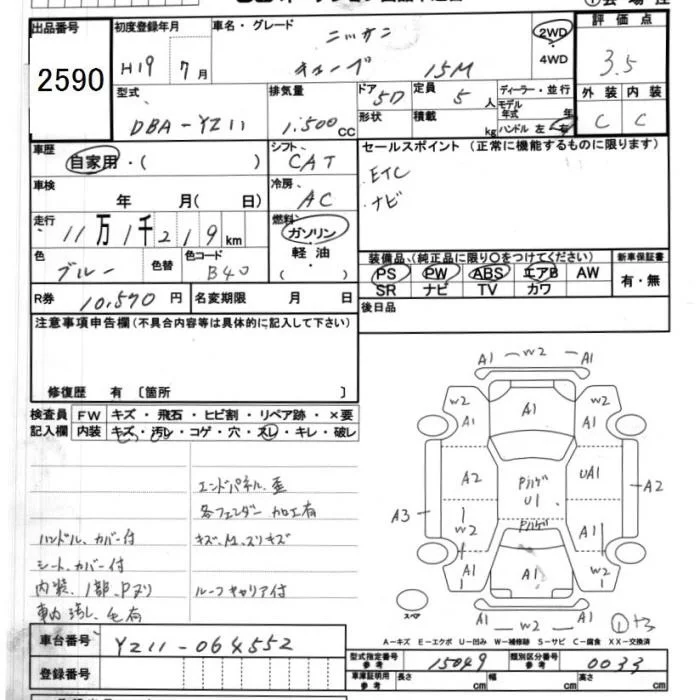 出品番号 初度登録年月 車名・グレード ニッサン 2WD 評価点
2590 H19 7月 キューブ 15M 4WD 3.5
型式 排気量 ドア 5D 定員 5人 ディーラー・並行 外装 内装
DBA-YZ11 1.500cc 形状 積載 kg モデル年式 年 C C
ハンドル 左・右
車歴 自家用・( ) シフト CAT セールスポイント (正常に機能するものに限ります)
車検 年 月( 日) 冷房 AC ETC
ナビ
走行 11万1千219km 燃料 ガソリン
軽油
色 ブルー 色替 色コード B40 ( )
装備品、(純正品に限り○をつけてください) 新車保証書
PS PW ABS エアB AW 有・無
SR ナビ TV カワ
R券 10.570円 名変期限 月 日 後日品
注意事項申告欄(不具合内容等は具体的に記入して下さい)
修復歴 有 〔箇所 〕
検査員 FW キズ・飛石・ヒビ割・リペア跡・×要
記入欄 内装 キズ・汚し・コゲ・穴・スレ・キレ・破し
エンドパネル、歪
各フェンダー加工有
ハンドル、カバー付 キズ、M、スリキズ
シート、カバー付
内装、1部、Pヌリ ルーフキャリア付
車内汚し、毛有
A1 W2 A1
W2 A1 A1 W2 A1
A2 Pハゲ U1 UA1 A2
A3 W2 A1 Pハゲ A1 W2
A1
A1 W2 A1
スペア ①+3
A-キズ E-エクボ U-凹み W-補修跡 S-サビ C-腐食 XX-交換済
車台番号 YZ11-064552
型式指定番号 参考 15049 類別区分番号 参考 0033
登録番号 車庫証明用 参考 長さ cm 幅 cm 高さ cm